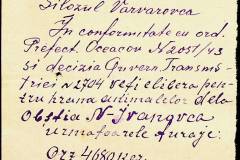 Silozul Varvarovca
In conformitate cu ord.
Prefect. Oceacov № 2051/43
si decizia Guvern. Transnis-
triei № 2704 veti elibera pen-
tru hrana animalelor dela
Obstia N-Ivanovca
urmatoarele furaje:
Orz 4680 kgr.